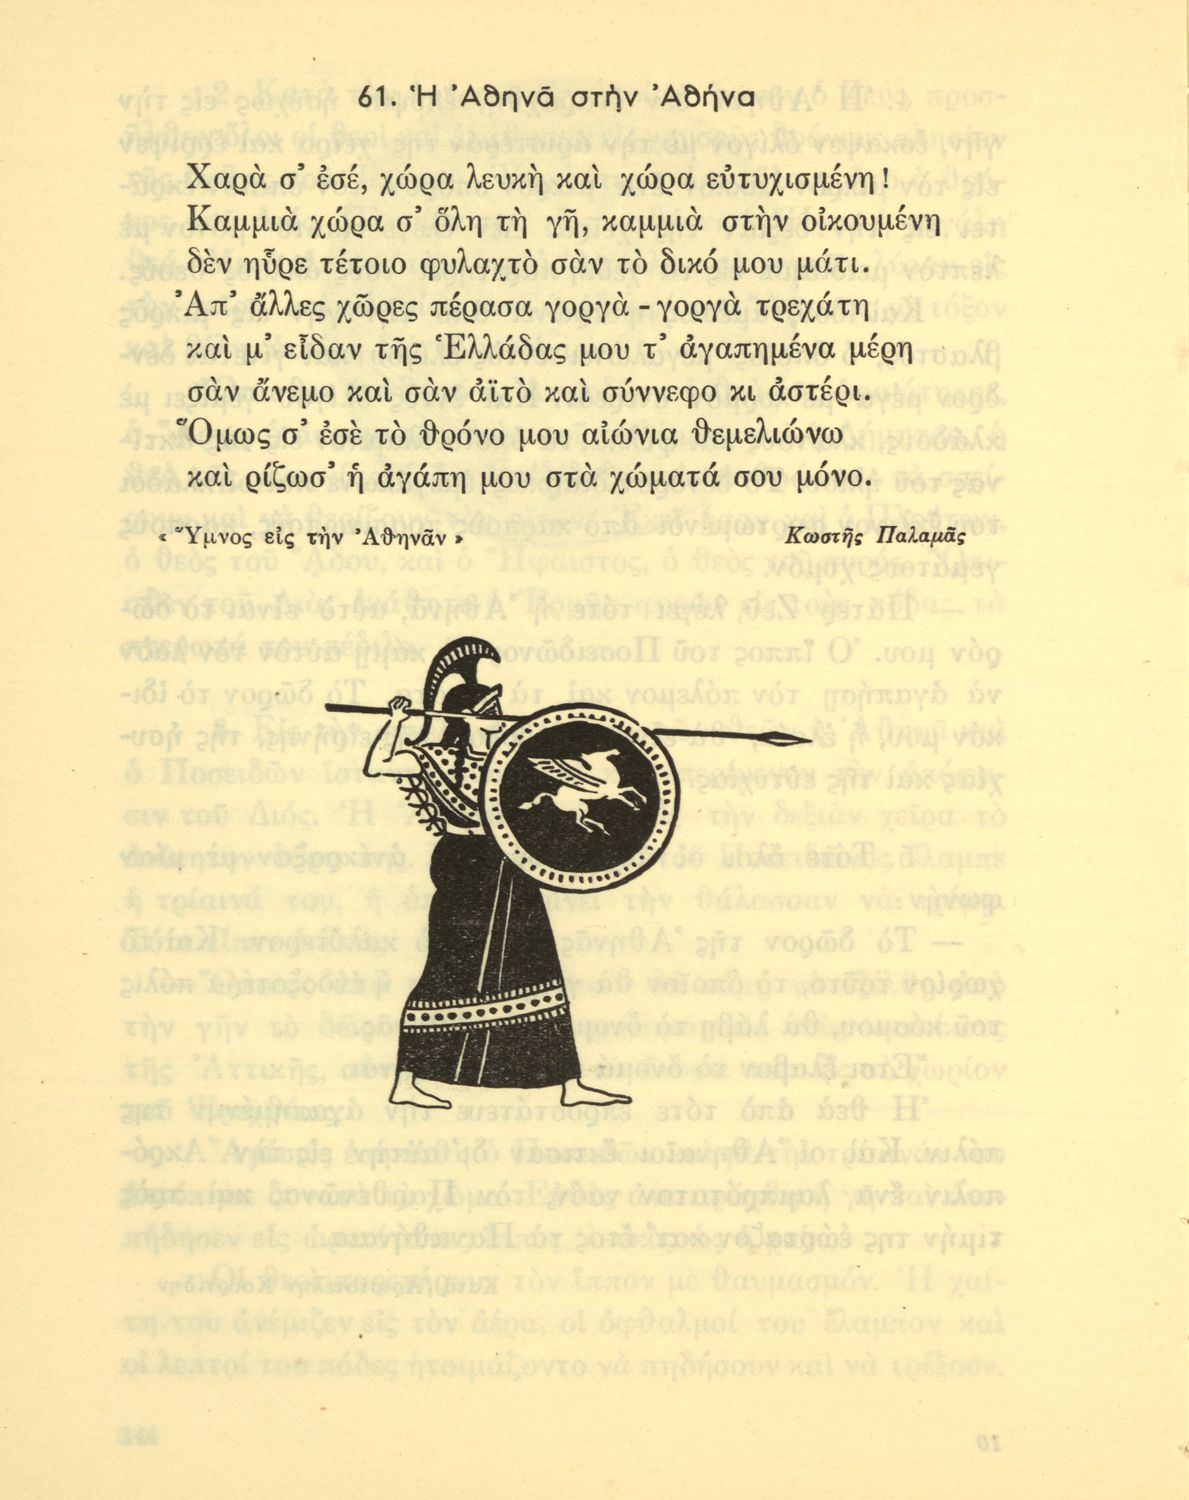 61. Ἡ Ἀθηνᾶ στὴν Ἀθήνα
Χαρὰ σ' ἐσέ, χώρα λευκὴ καὶ χώρα εὐτυχισμένη!
Καμμιὰ χώρα σ' ὅλη τὴ γῆ, καμμιὰ στὴν οἰκουμένη
δὲν ηὗρε τέτοιο φυλαχτὸ σὰν τὸ δικό μου μάτι.
Ἀπ' ἄλλες χῶρες πέρασα γοργὰ - γοργὰ τρεχάτη
καὶ μ' εἶδαν τῆς Ἑλλάδας μου τ' ἀγαπημένα μέρη
σὰν ἄνεμο καὶ σὰν ἀϊτὸ καὶ σύννεφο κι ἀστέρι.
Ὅμως σ' ἐσὲ τὸ θρόνο μου αἰώνια θεμελιώνω
καὶ ρίζωσ' ἡ ἀγάπη μου στὰ χώματά σου μόνο.
« Ὕμνος εἰς τὴν Ἀθηνᾶν » Κωστῆς Παλαμᾶς